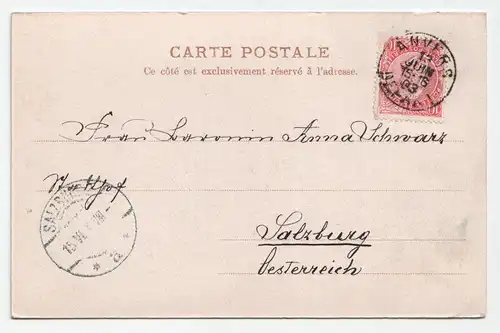 CARTE POSTALE
Ce côté est exclusivement réservé à l'adresse.
ANVERS
JUIN
15-16
03
DÉPART
Frau Baronin Anna Schwarz
SALZBURG
15 VI
Salzburg
Oesterreich